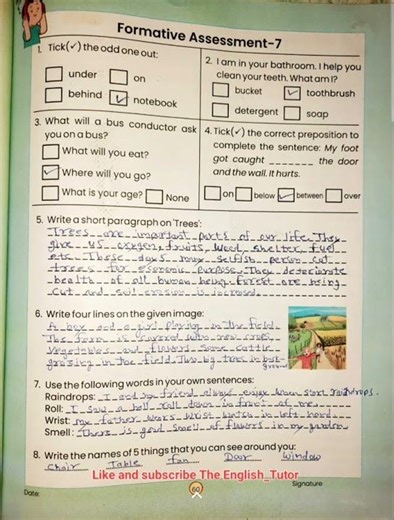 Formative Assessment-7
1. Tick(✓) the odd one out:
under on
behind notebook
2. I am in your bathroom. I help you
clean your teeth. What am I?
bucket toothbrush
detergent soap
3. What will a bus conductor ask
you on a bus?
What will you eat?
Where will you go?
What is your age? None
4. Tick(✓) the correct preposition to
complete the sentence: My foot
got caught _______ the door
and the wall. It hurts.
on below between over
5. Write a short paragraph on 'Trees':
Trees are important parts of our life. They
give us oxygen, fruits, wood, shelter, fuel
etc. These days many selfish person cut
trees for economic purpose. They deteriorate
health of all human being. forest are being
cut and soil erosion is increased
6. Write four lines on the given image:
A boy and a girl playing in the field
The farm is covered with new crops
vegetables and flowers. Some cattle
grazing in the field. Two big trees in
7. Use the following words in your own sentences:
Raindrops: I and my friend always enjoy when start raindrops.
Roll: I saw a ball roll down in front of me
Wrist: my father wears wrist watch in left hand
Smell: There is good smell of flowers in my garden
8. Write the names of 5 things that you can see around you:
Chair Table Fan Door Window
Like and subscribe The English_Tutor
Date: 60 Signature